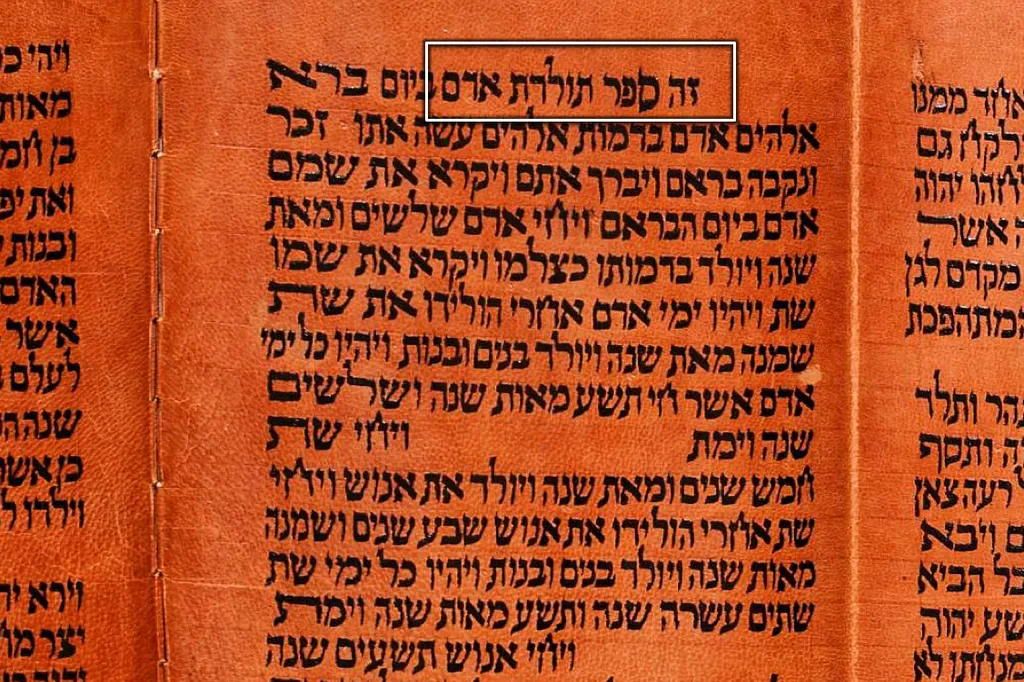 אחד ממנו
גם
יהוה
אשר
מקדם לגן
המתהפכת
ותלד
ותסף
רעה צאן
ויבא
הביא
יהוה
לא
זה ספר תולדת אדם ביום ברא
אלהים אדם בדמות אלהים עשה אתו זכר
ונקבה בראם ויברך אתם ויקרא את שמם
אדם ביום הבראם ויחי אדם שלשים ומאת
שנה ויולד בדמותו כצלמו ויקרא את שמו
שת ויהיו ימי אדם אחרי הולידו את שת
שמנה מאת שנה ויולד בנים ובנות ויהיו כל ימי
אדם אשר חי תשע מאות שנה ושלשים
שנה וימת ויחי שת
חמש שנים ומאת שנה ויולד את אנוש ויחי
שת אחרי הולידו את אנוש שבע שנים ושמנה
מאות שנה ויולד בנים ובנות ויהיו כל ימי שת
שתים עשרה שנה ותשע מאות שנה וימת
ויחי אנוש תשעים שנה
ויהי
מאות
בן
ואת
ובנות
האדם
אשר
לעלם
שנה
כן אשר
וילדו
וירא
יצר